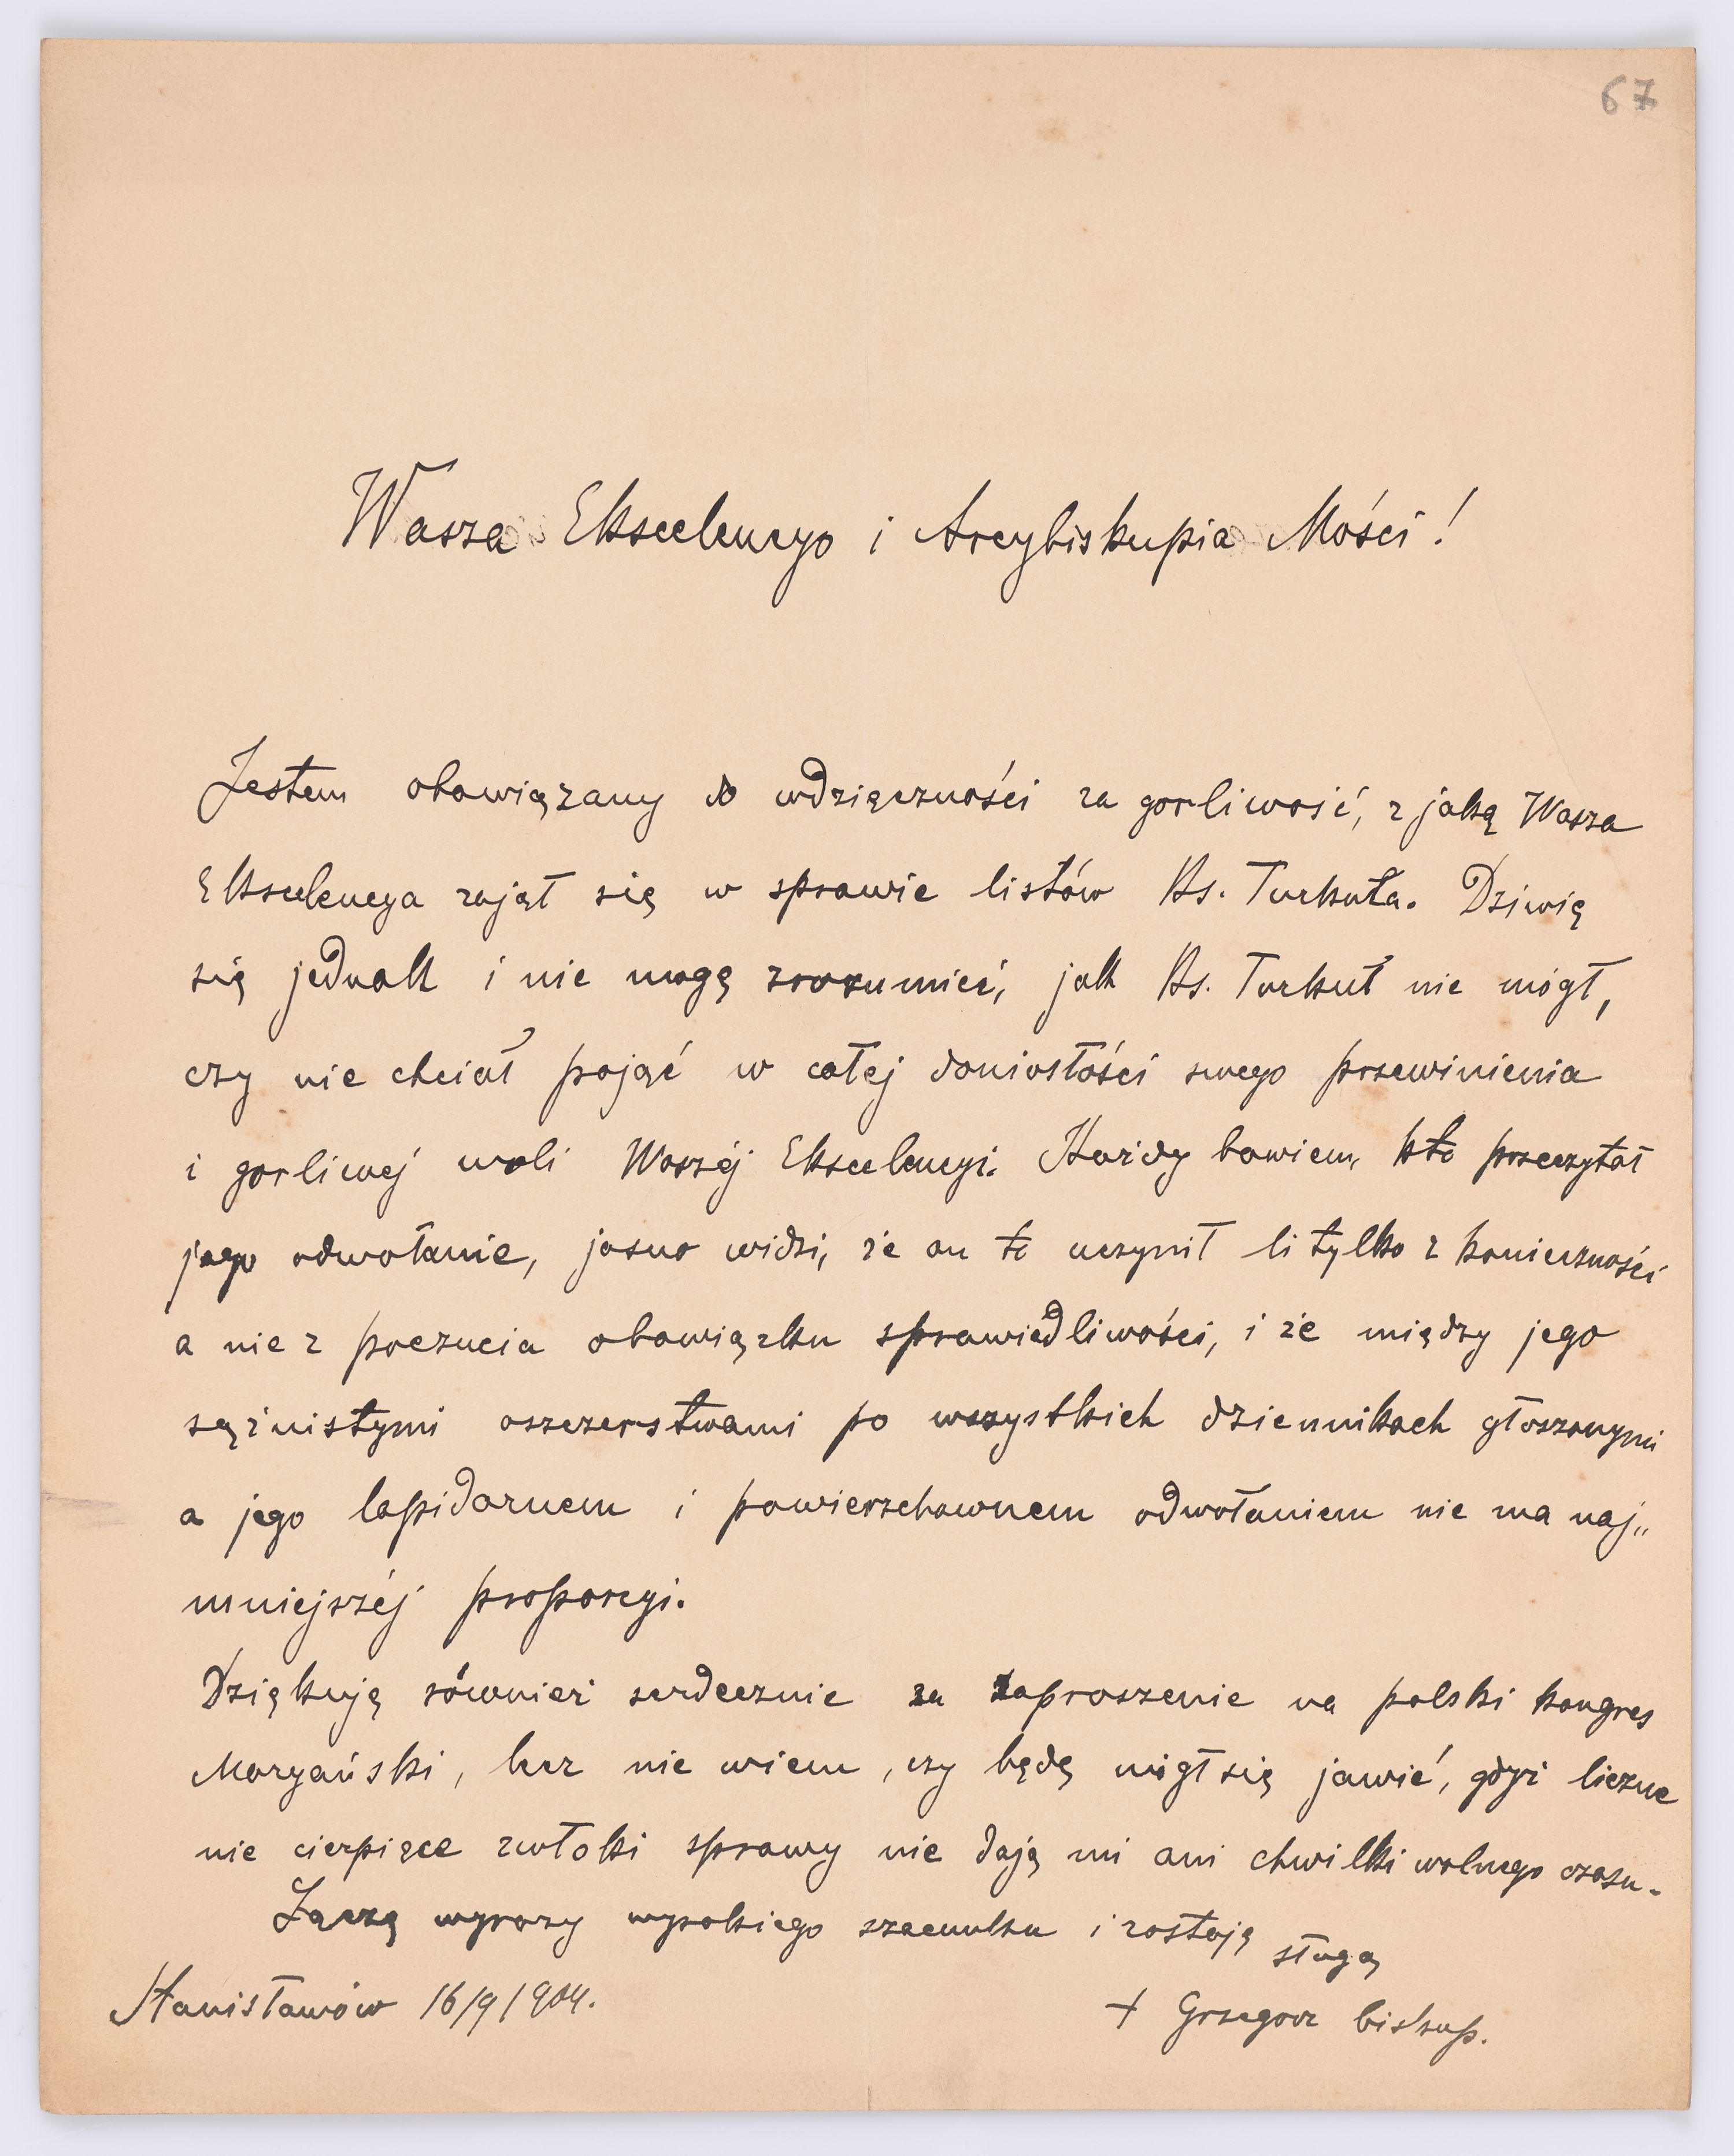 67
Wasza Ekscelencyo i Arcybiskupia Mości!
Jestem obowiązany do wdzięczności za gorliwość, z jaką Wasza
Ekscelencya zajął się w sprawie listów Ks. Turkuła. Dziwię
się jednak i nie mogę zrozumieć, jak Ks. Turkuł nie mógł,
czy nie chciał pojąć w całej doniosłości swego przewinienia
i gorliwej woli Waszéj Ekscelencyi. Każdy bowiem kto przeczytał
jego odwołanie, jasno widzi, że on to uczynił li tylko z konieczności
a nie z poczucia obowiązku sprawiedliwości, i że między jego
sążnistymi oszczerstwami po wszystkich dziennikach głoszonymi
a jego lapidarnem i powierzchownem odwołaniem nie ma naj„
mniejszéj proporcyi.
Dziękuję również serdecznie za zaproszenie na polski kongres
Maryański, lecz nie wiem, czy będę mógł się jawić, gdyż liczne
nie cierpiące zwłoki sprawy nie dają mi ani chwilki wolnego czasu.
Łączę wyrazy wysokiego szacunku i zostaję sługą
Stanisławów 16/9/904.
+ Grzegorz biskup.